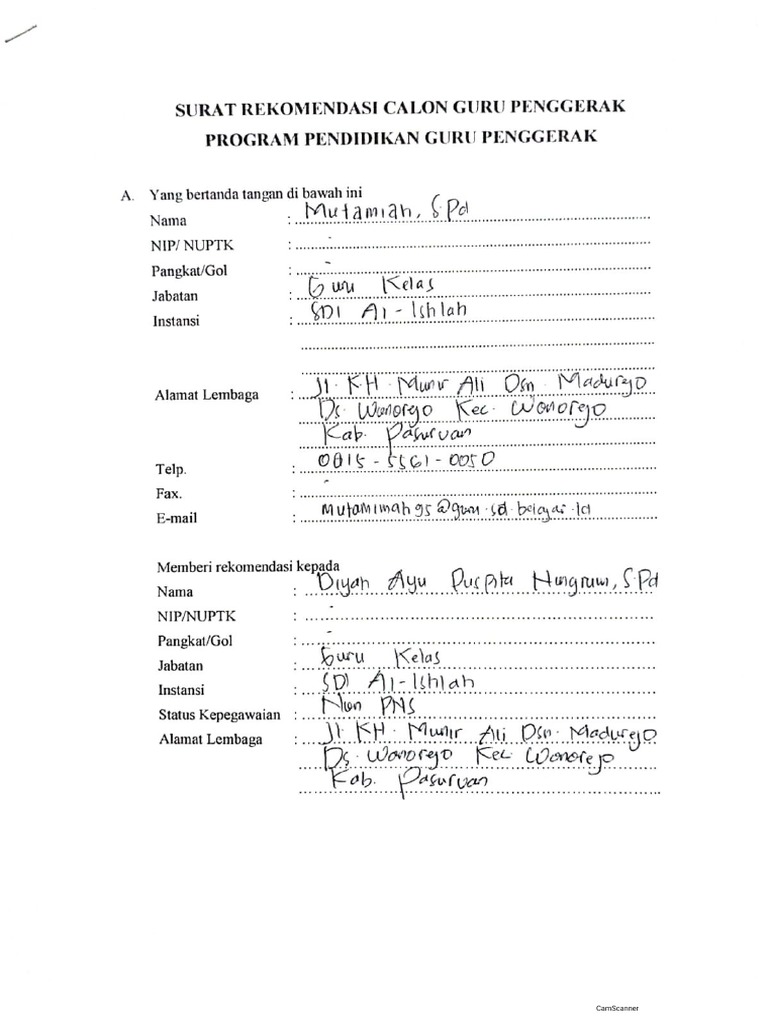 SURAT REKOMENDASI CALON GURU PENGGERAK
PROGRAM PENDIDIKAN GURU PENGGERAK
A. Yang bertanda tangan di bawah ini
Nama : Mutamiah, S.Pd
NIP/ NUPTK : -
Pangkat/Gol : -
Jabatan : Guru Kelas
Instansi : SDI Al-Ishlah
Alamat Lembaga : Jl. KH. Munir Ali Dsn. Madurejo
Ds. Wonorejo Kec. Wonorejo
Kab. Pasuruan
Telp. : 0815-5561-0050
Fax. : -
E-mail : mutamimah95@guru.sd.belajar.id
Memberi rekomendasi kepada
Nama : Diyah Ayu Puspita Ningrum, S.Pd
NIP/NUPTK : -
Pangkat/Gol : -
Jabatan : Guru Kelas
Instansi : SDI Al-Ishlah
Status Kepegawaian : Non PNS
Alamat Lembaga : Jl. KH. Munir Ali Dsn. Madurejo
Ds. Wonorejo Kec. Wonorejo
Kab. Pasuruan
CamScanner